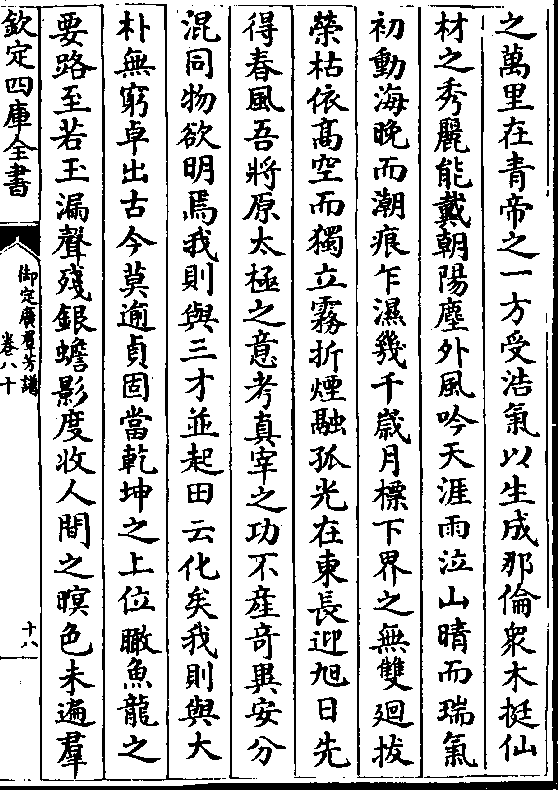 之萬里在青帝之一方受浩氣以生成那倫衆木挺仙
材之秀麗能戴朝陽塵外風吟天涯雨泣山晴而瑞氣
初動海晚而潮痕乍濕幾千歳月標下界之無雙廻拔
榮枯依髙空而獨立霧折煙融孤光在東長迎旭日先
得春風吾將原太極之意考真宰之功不產奇異安分
混同物欲明焉我則與三才並起田云化矣我則與大
朴無窮卓出古今莫逾貞固當乾坤之上位瞰魚龍之
要路至若玉漏聲殘銀蟾影度收人間之暝色未遍羣
欽定四庫全書
御定廣羣芳譜
卷八十
十八